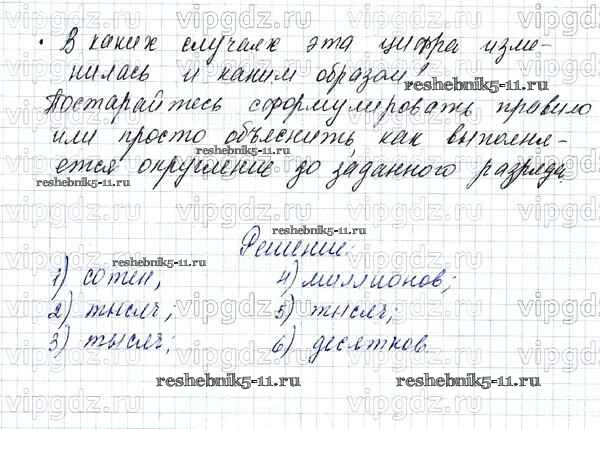 · В каких случаях эта цифра изме-
нилась и каким образом?
Постарайтесь сформулировать правило
или просто объяснить, как выполня-
ется округление до заданного разряда
Решение:
1) сотен, 4) миллионов;
2) тысяч, 5) тысяч;
3) тысяч; 6) десятков
reshebnik5-11.ru
reshebnik5-11.ru
reshebnik5-11.ru
reshebnik5-11.ru
reshebnik5-11.ru
reshebnik5-11.ru
vipgdz.ru